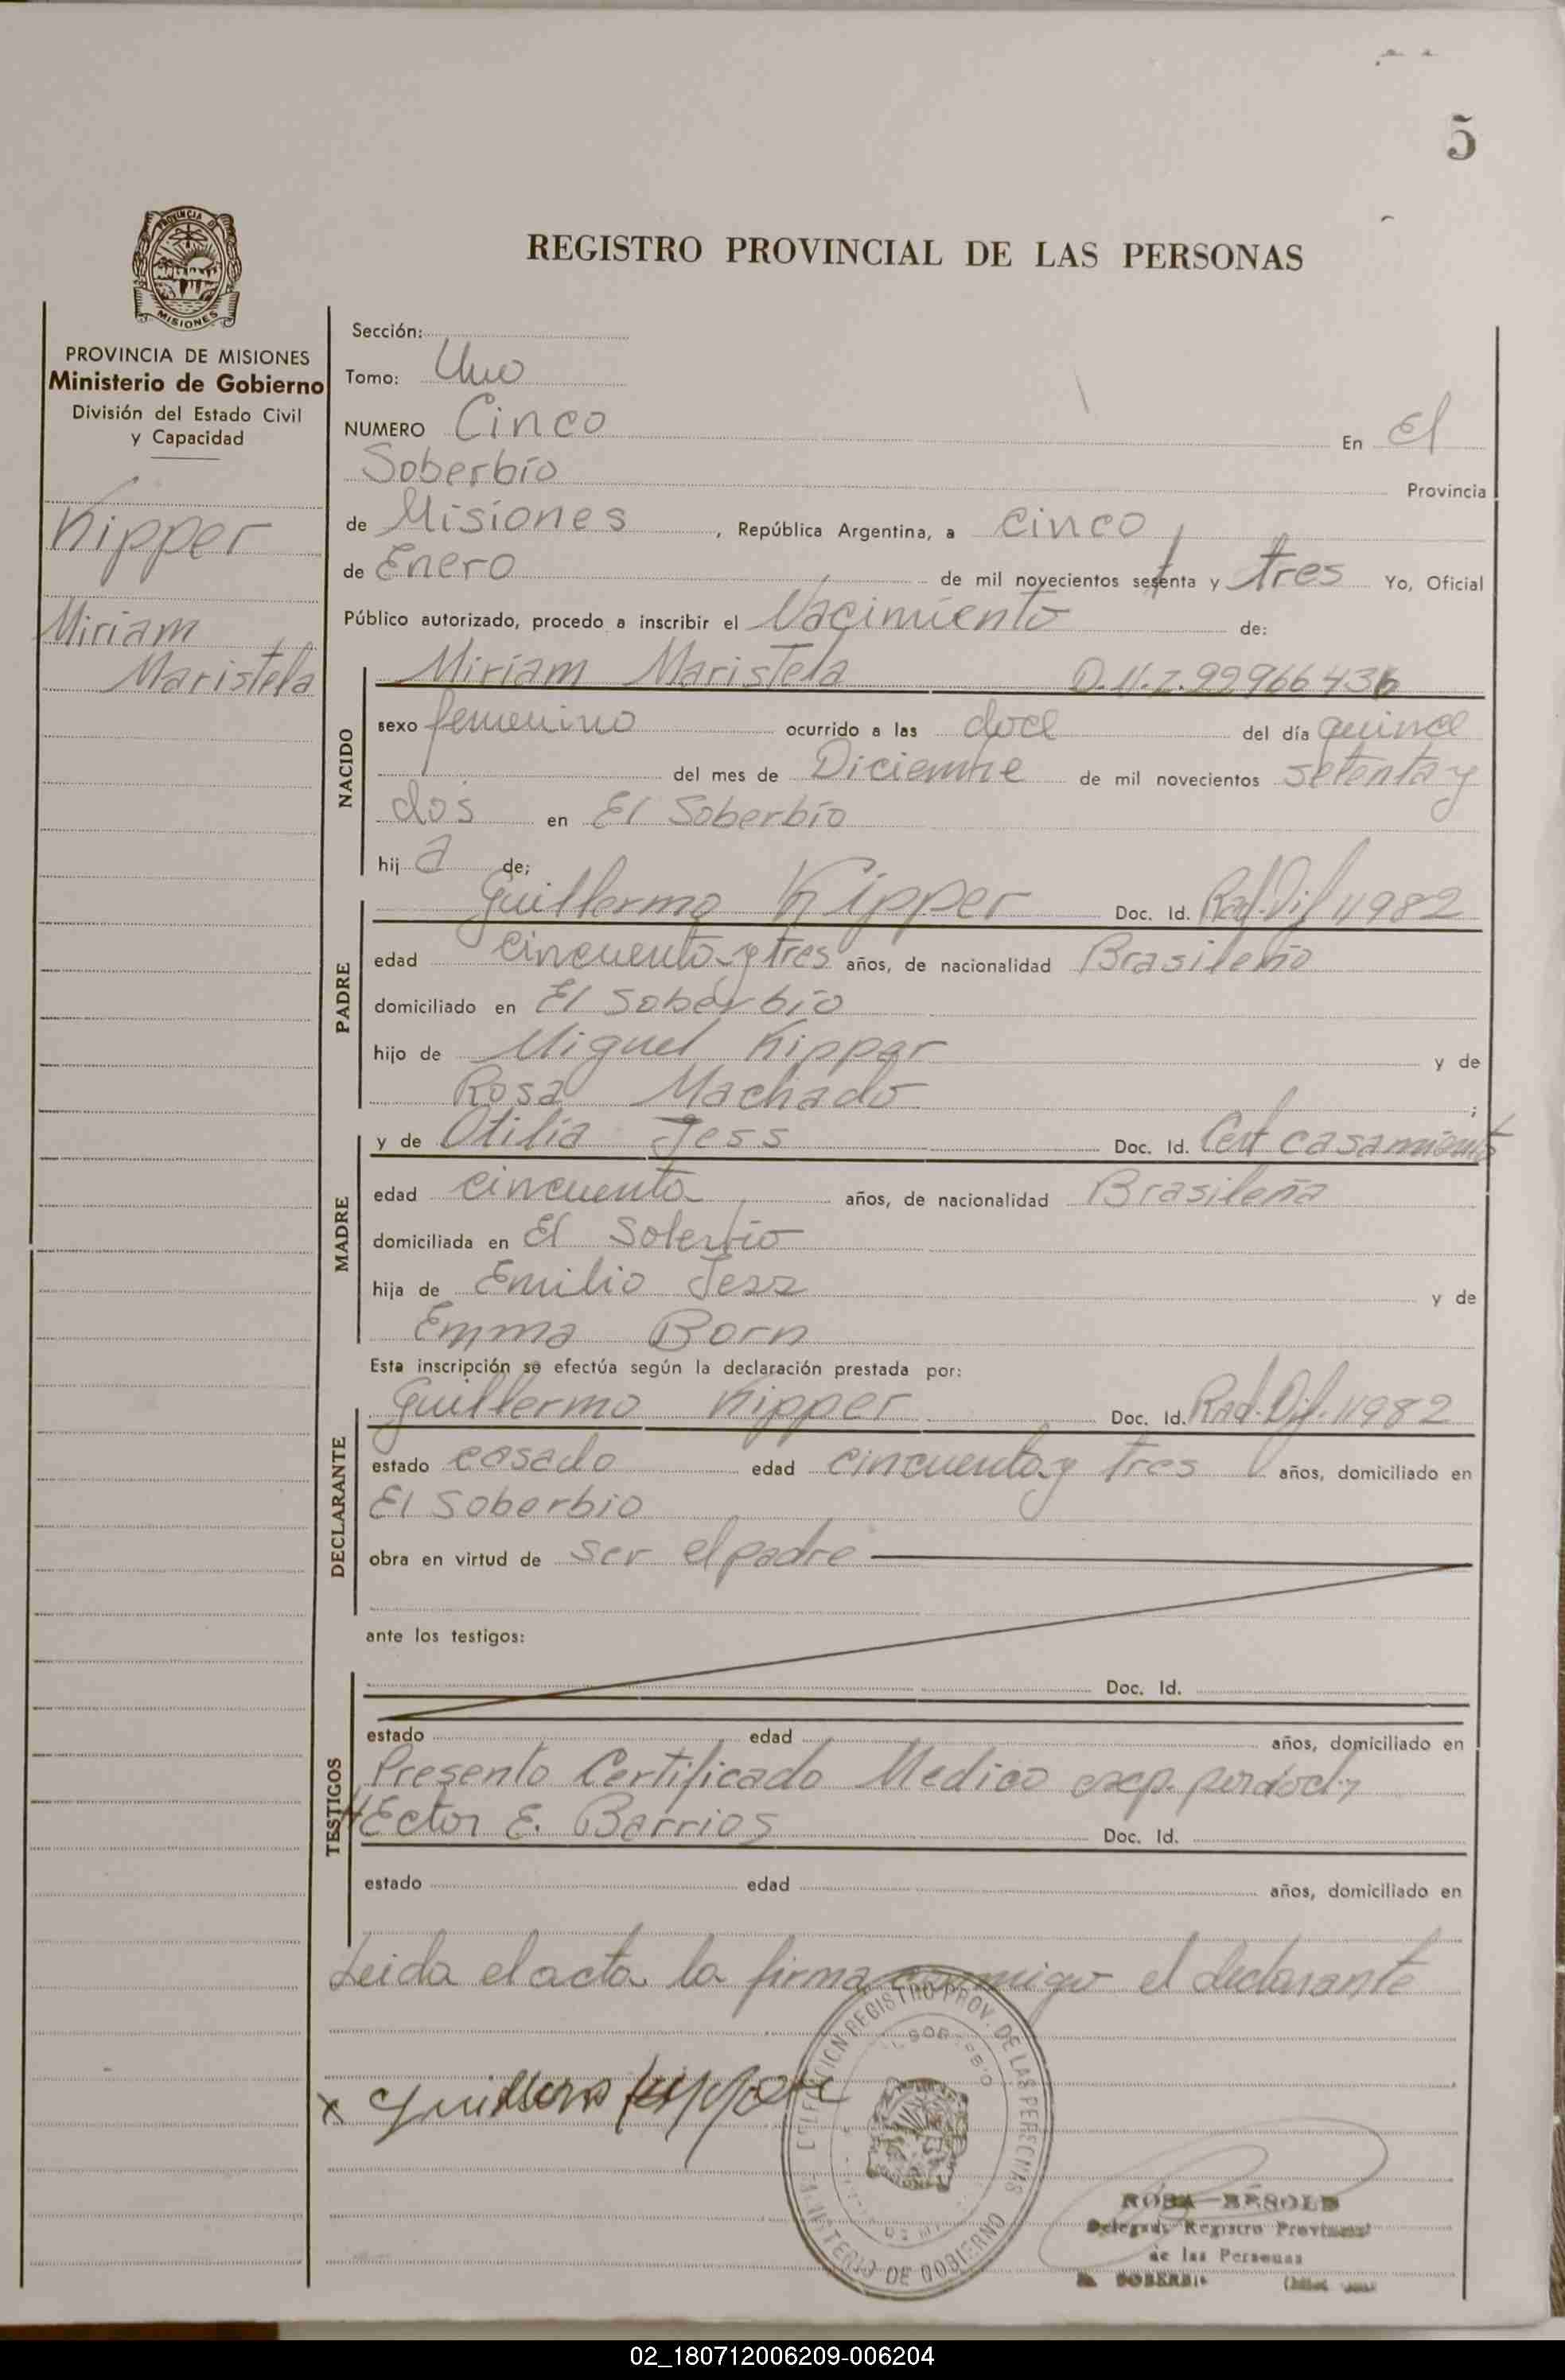 5
REGISTRO PROVINCIAL DE LAS PERSONAS
PROVINCIA DE MISIONES
Ministerio de Gobierno
División del Estado Civil
y Capacidad
Kipper
Miriam
Maristela
Sección:
Tomo: Uno
NUMERO Cinco En El
Soberbio Provincia
de Misiones, República Argentina, a cinco
de Enero de mil novecientos setenta y tres Yo, Oficial
Público autorizado, procedo a inscribir el Nacimiento de:
NACIDO
Miriam Maristela
sexo femenino ocurrido a las doce del día quince
del mes de Diciembre de mil novecientos setenta y
dos en El Soberbio
hij a de;
PADRE
Guillermo Kipper Doc. Id. Rad. Dif 11982
edad cincuenta y tres años, de nacionalidad Brasileño
domiciliado en El Soberbio
hijo de Miguel Kipper y de
Rosa Machado ;
MADRE
y de Otilia Jess Doc. Id. Cert casamiento
edad cincuenta años, de nacionalidad Brasileña
domiciliada en El Soberbio
hija de Emilio Jess y de
Emma Born
Esta inscripción se efectúa según la declaración prestada por:
DECLARANTE
Guillermo Kipper Doc. Id. Rad. Dif. 11982
estado casado edad cincuenta y tres años, domiciliado en
El Soberbio
obra en virtud de ser el padre
ante los testigos:
TESTIGOS
Doc. Id.
estado edad años, domiciliado en
Presento Certificado Medico exp. por doct;
HEctor E. Barrios Doc. Id.
estado edad años, domiciliado en
Leida el acta la firma conmigo el declarante
x Guillermo Kipper
REGISTRO PROV. DE LAS PERSONAS
MINISTERIO DE GOBIERNO
ROSA BESOLD
Delegada Registro Provincial
de las Personas
SOBERBIO
02_180712006209-006204